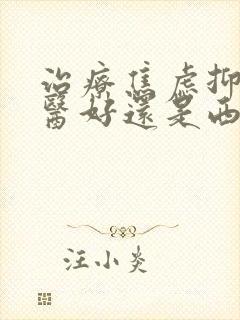 治療焦慮抑
醫好還是西
汪小炎